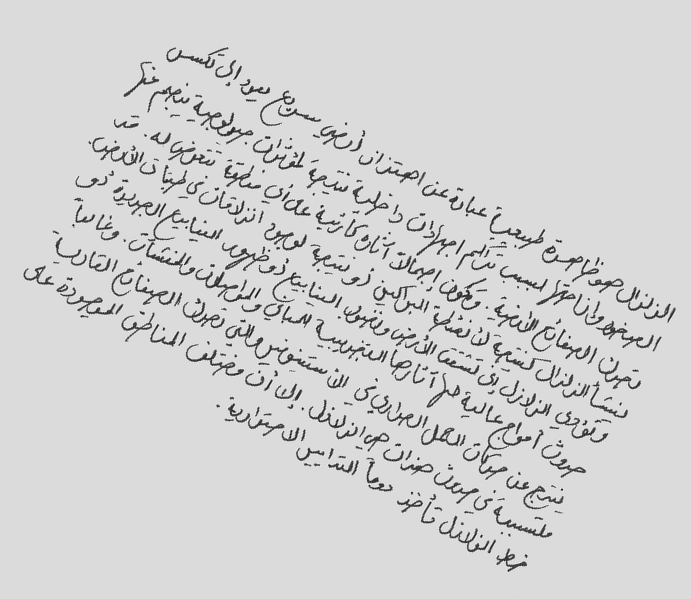 الزلزال هو ظاهرة طبيعية عبارة عن اهتزاز أرضي سريع يعود إلى تكسر
الصخور وإزاحتها بسبب تراكم إجهادات داخلية نتيجة لمؤثرات جيولوجية ينجم عنها
تحرك الصفائح الأرضية. وتكون إجمالا آثاره كارثية على أي منطقة تتعرض له. قد
ينشأ الزلزال كنتيجة لأنشطة البراكين أو نتيجة لوجود انزلاقات في طبقات الأرض.
وتؤدي الزلازل إلى تشقق الأرض ونضوب الينابيع أو ظهور الينابيع الجديدة أو
حدوث أمواج عالية لها آثارها التخريبية للمباني والمواصلات والمنشآت. وغالباً
ينتج عن حركات الحمل الحراري في الاستينوسفير والتي تحرك الصفائح القارية
متسببة في حدوث هزات هي الزلازل. إلا أن مختلف المناطق الموجودة على
خط الزلازل تأخذ دوماً التدابير الاحترازية.